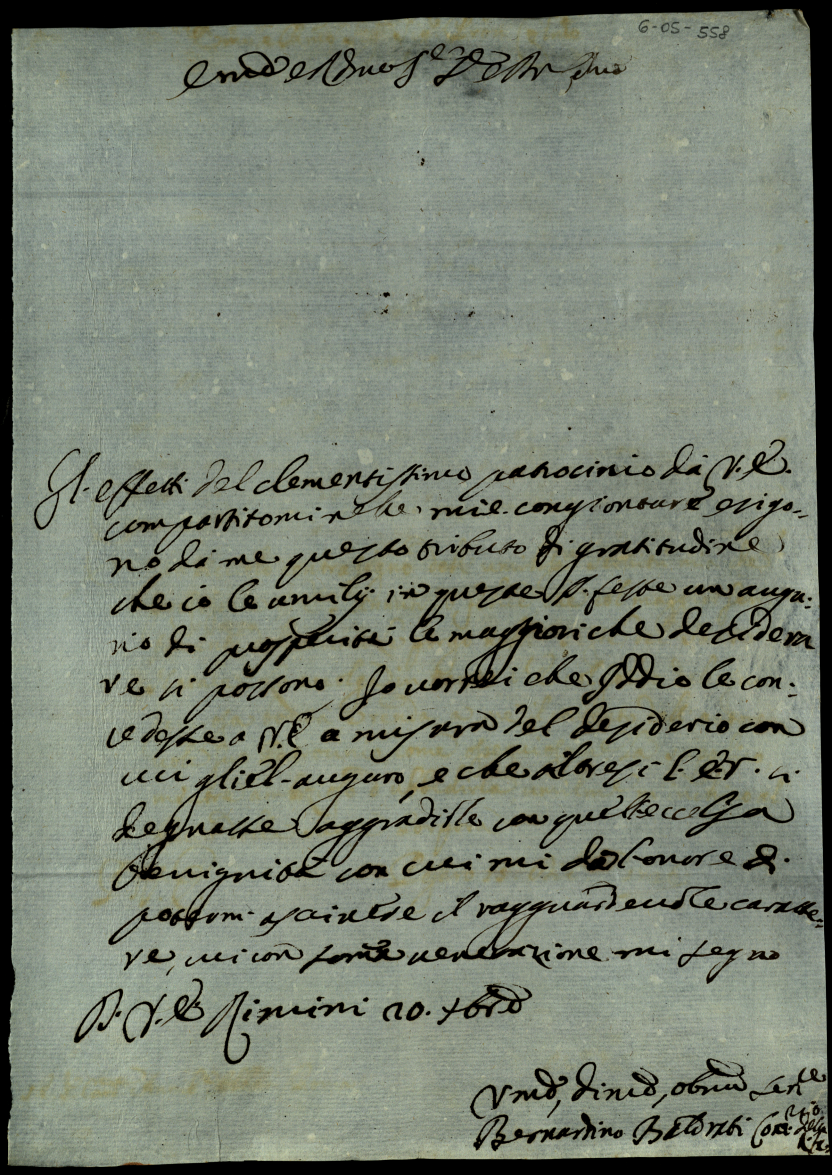 6-05-558
Gl'effetti del clementissimo patrocinio da V. E.
compartitomi nelle mie congionture esigo-
no da me questo tributo di gratitudine
che io le umilj in queste S. feste un augu-
rio di prosperità le maggiori che desidera
re si possono. Io vorrei che Iddio le con-
cedesse a V. E. a misura del desiderio con
cui gliel'auguro, e che altresi l'E. V. si
degnasse aggradirle con quell'eccelsa
benignità con cui mi dà l'onore di
potermi ascrivere il ragguardevole caratte-
re, cui con somma venerazione mi segno
D. V. E. Rimini 20. Xbre
Umo, divmo, obmo ser.re
Bernardino Baldrati